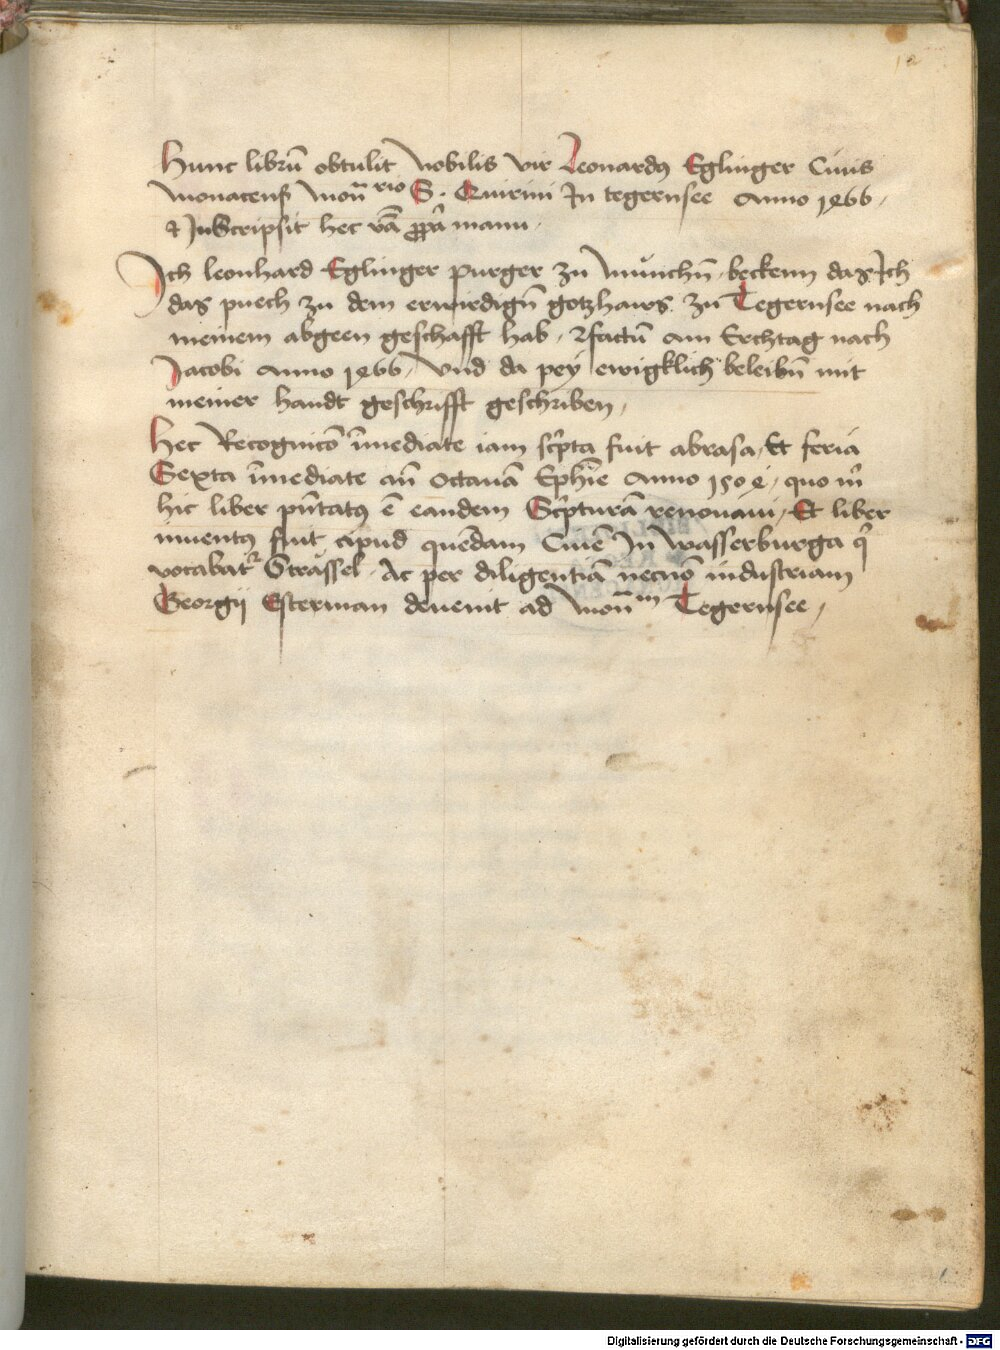 Hunc librū obtulit Nobilis vir Leonardꝰ Eglinger Ciuis
monacens̄ Mon̄rio S. Quirini In tegernsee Anno 1466.
& Inscripsit hec vā ꝓp̄a manu.
Ich leonhard Eglinger purger zu münchn̄. bekenn das Ich
das puech zu dem erwirdign̄ gotzhaws zu Tegernsee nach
meinem abgeen geschafft hab. factū Am Erchtag nach
Jacobi Anno 1466. Vnd da pey ewigklich beleibn̄ mit
meiner handt geschrifft geschriben,
Hec Recognicō īmediate iam sc̄pta fuit abrasa, Et feria
Sexta īmediate an̄ Octauā Ephīe Anno 1504, quo m̄
hic liber pn̄tatꝰ ē eandem Sc̄pturā renouaui, Et liber
inuentꝰ fuit apud quēdam Ciuē In wasserburga q̄
vocabatr Strässel. Ac per diligentiā necnō industriam
Georgij Esterman deuenit ad Mon̄m Tegernsee,
Digitalisierung gefördert durch die Deutsche Forschungsgemeinschaft - DFG